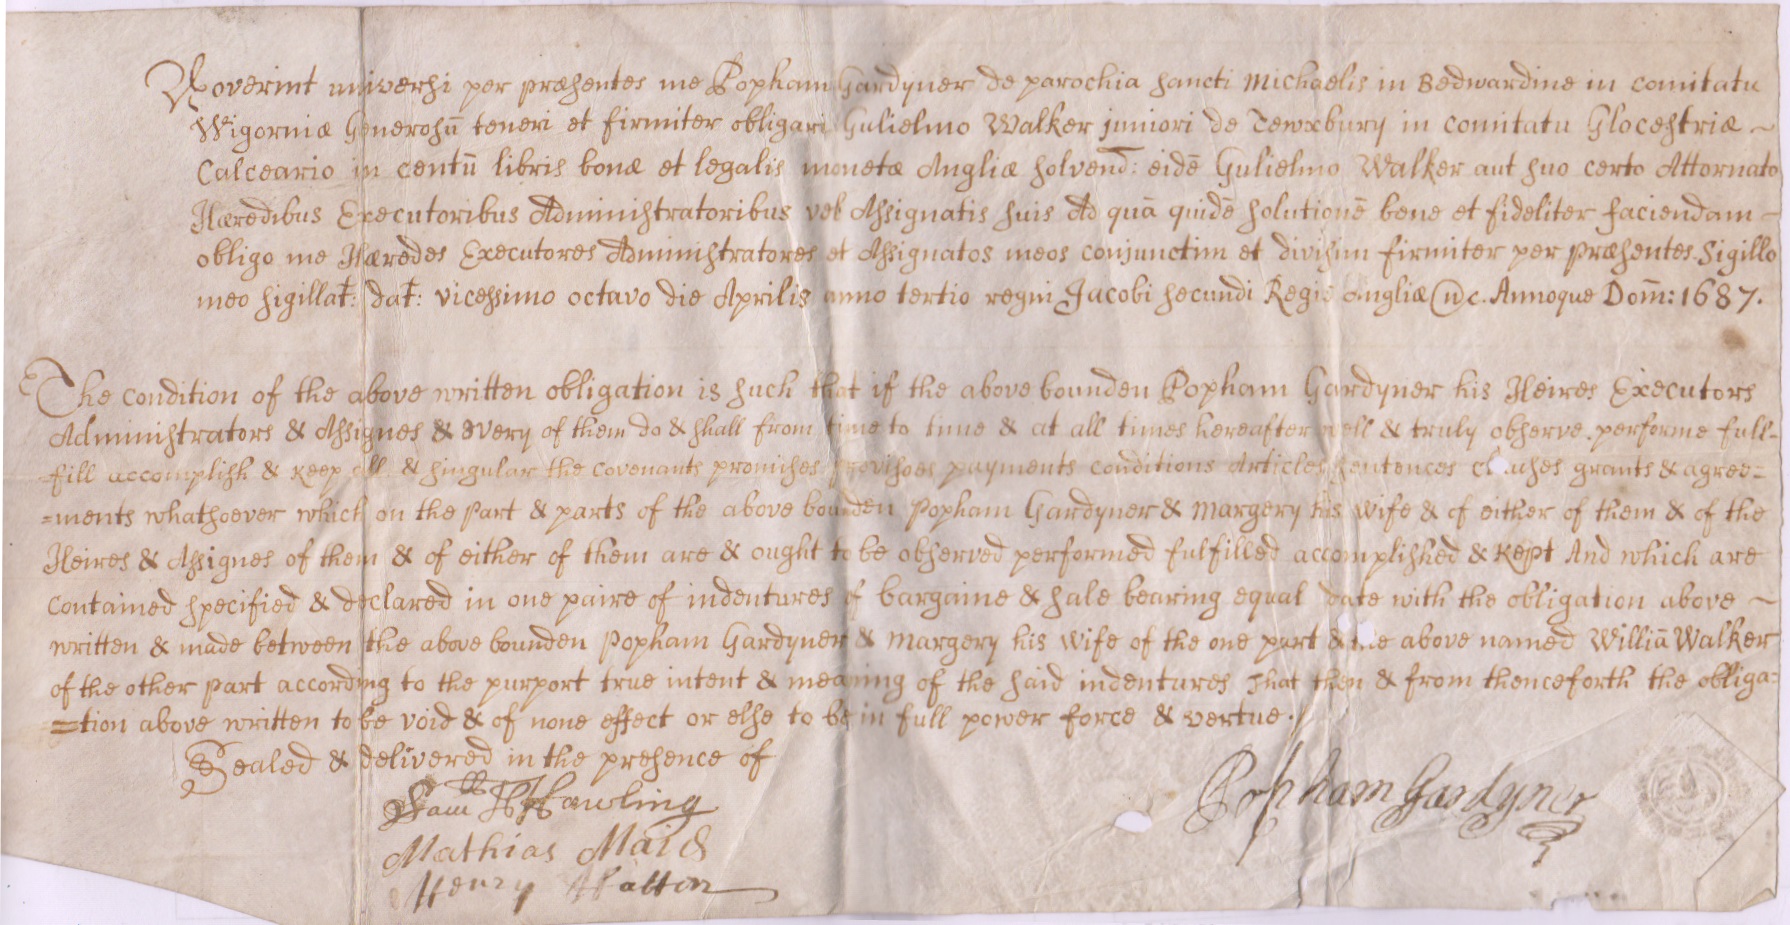 Noverint universi per præsentes me Popham Gardyner de parochia sancti Michaelis in Bedwardine in comitatu
Wigorniæ Generosū teneri et firmiter obligari Gulielmo Walker juniori de Tewxbury in comitatu Glocestriæ ~
Calceario in centū libris bonæ et legalis monetæ Angliæ solvend: eidē Gulielmo Walker aut suo certo Attornato
Hæredibus Executoribus Administratoribus vel Assignatis suis Ad quā quidē solutionē bene et fideliter faciendam ~
obligo me Hæredes Executores Administratores et Assignatos meos conjunctim et divisim firmiter per præsentes. Sigillo
meo sigillat: dat: vicessimo octavo die Aprilis anno tertio regni Jacobi secundi Regis Angliæ &c. Annoque Dom̄: 1687.
The condition of the above written obligation is such that if the above bounden Popham Gardyner his Heires Executors
Administrators & Assignes & every of them do & shall from time to time & at all times hereafter well & truly observe. performe full-
fill accomplish & keep all & singular the covenants promises provisoes payments conditions Articles sentences clauses grants & agree=
=ments whatsoever which on the part & parts of the above bounden Popham Gardyner & Margery his wife & of either of them & of the
Heires & Assignes of them & of either of them are & ought to be observed performed fulfilled accomplished & kept And which are
contained specified & declared in one paire of indentures of bargaine & sale bearing equal date with the obligation above ~
written & made between the above bounden Popham Gardyner & Margery his wife of the one part & the above named Williā Walker
of the other part according to the purport true intent & meaning of the said indentures That then & from thenceforth the obliga=
=tion above written to be void & of none effect or else to be in full power force & vertue.
Sealed & delivered in the presence of
Sam Hawling
Popham Gardyner
Mathias Maid
Henry Hatton